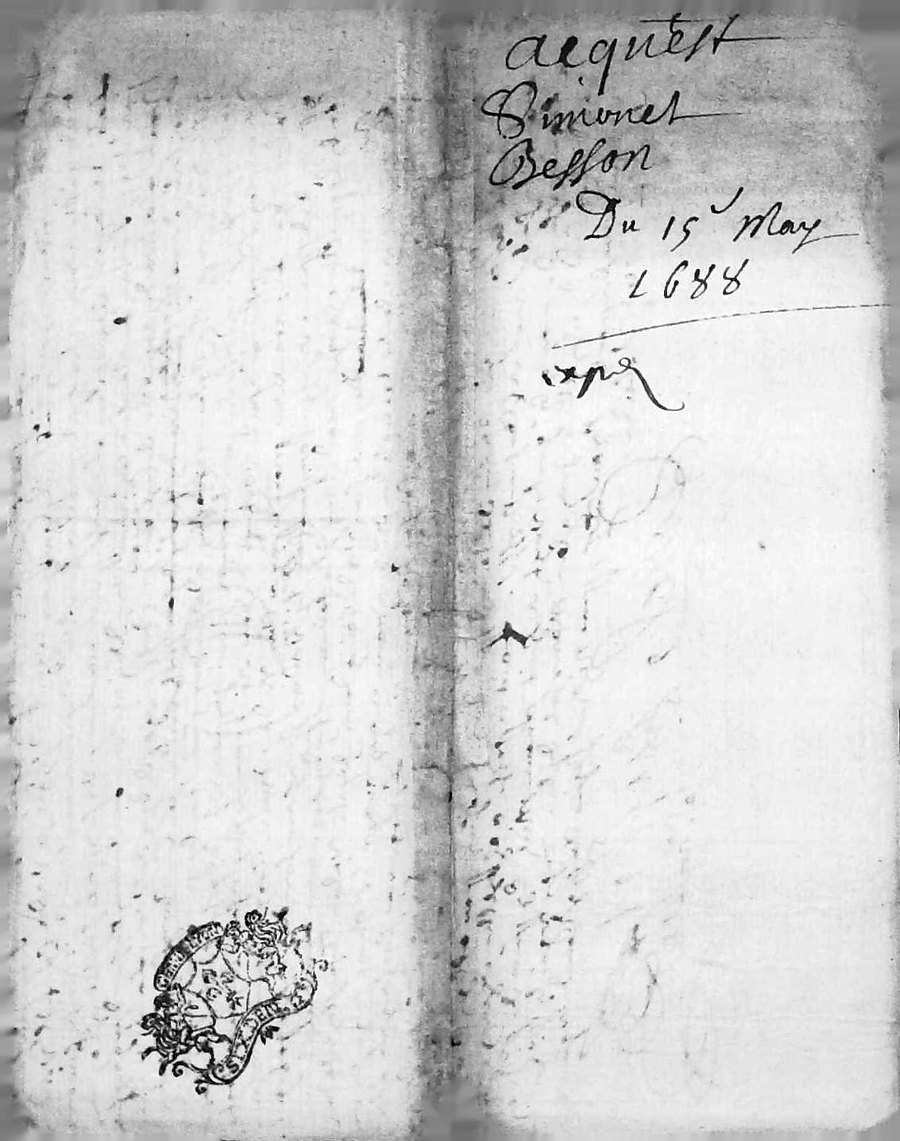 acquest
Simonet
Besson
Du 15 May
1688
SIX DEN